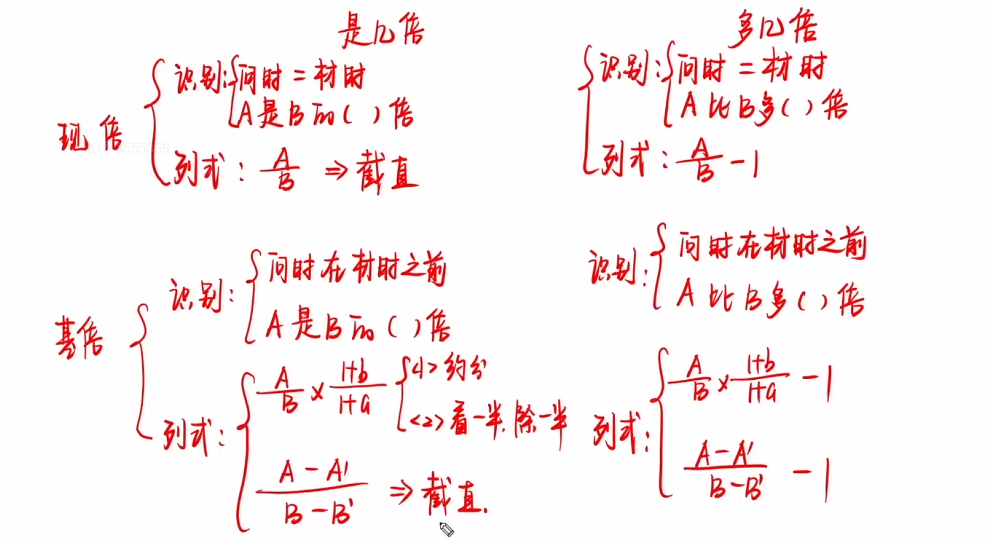 是几倍
现倍
识别:
问时=材时
A是B的( )倍
列式: A/B ⇒ 截直
多几倍
识别:
问时=材时
A比B多( )倍
列式: A/B - 1
基倍
识别:
问时在材时之前
A是B的( )倍
列式:
A/B × 1+b/1+a
<1> 约分
<2> 看一半,除一半
A-A'/B-B' ⇒ 截直.
识别:
问时在材时之前
A比B多( )倍
列式:
A/B × 1+b/1+a - 1
A-A'/B-B' - 1